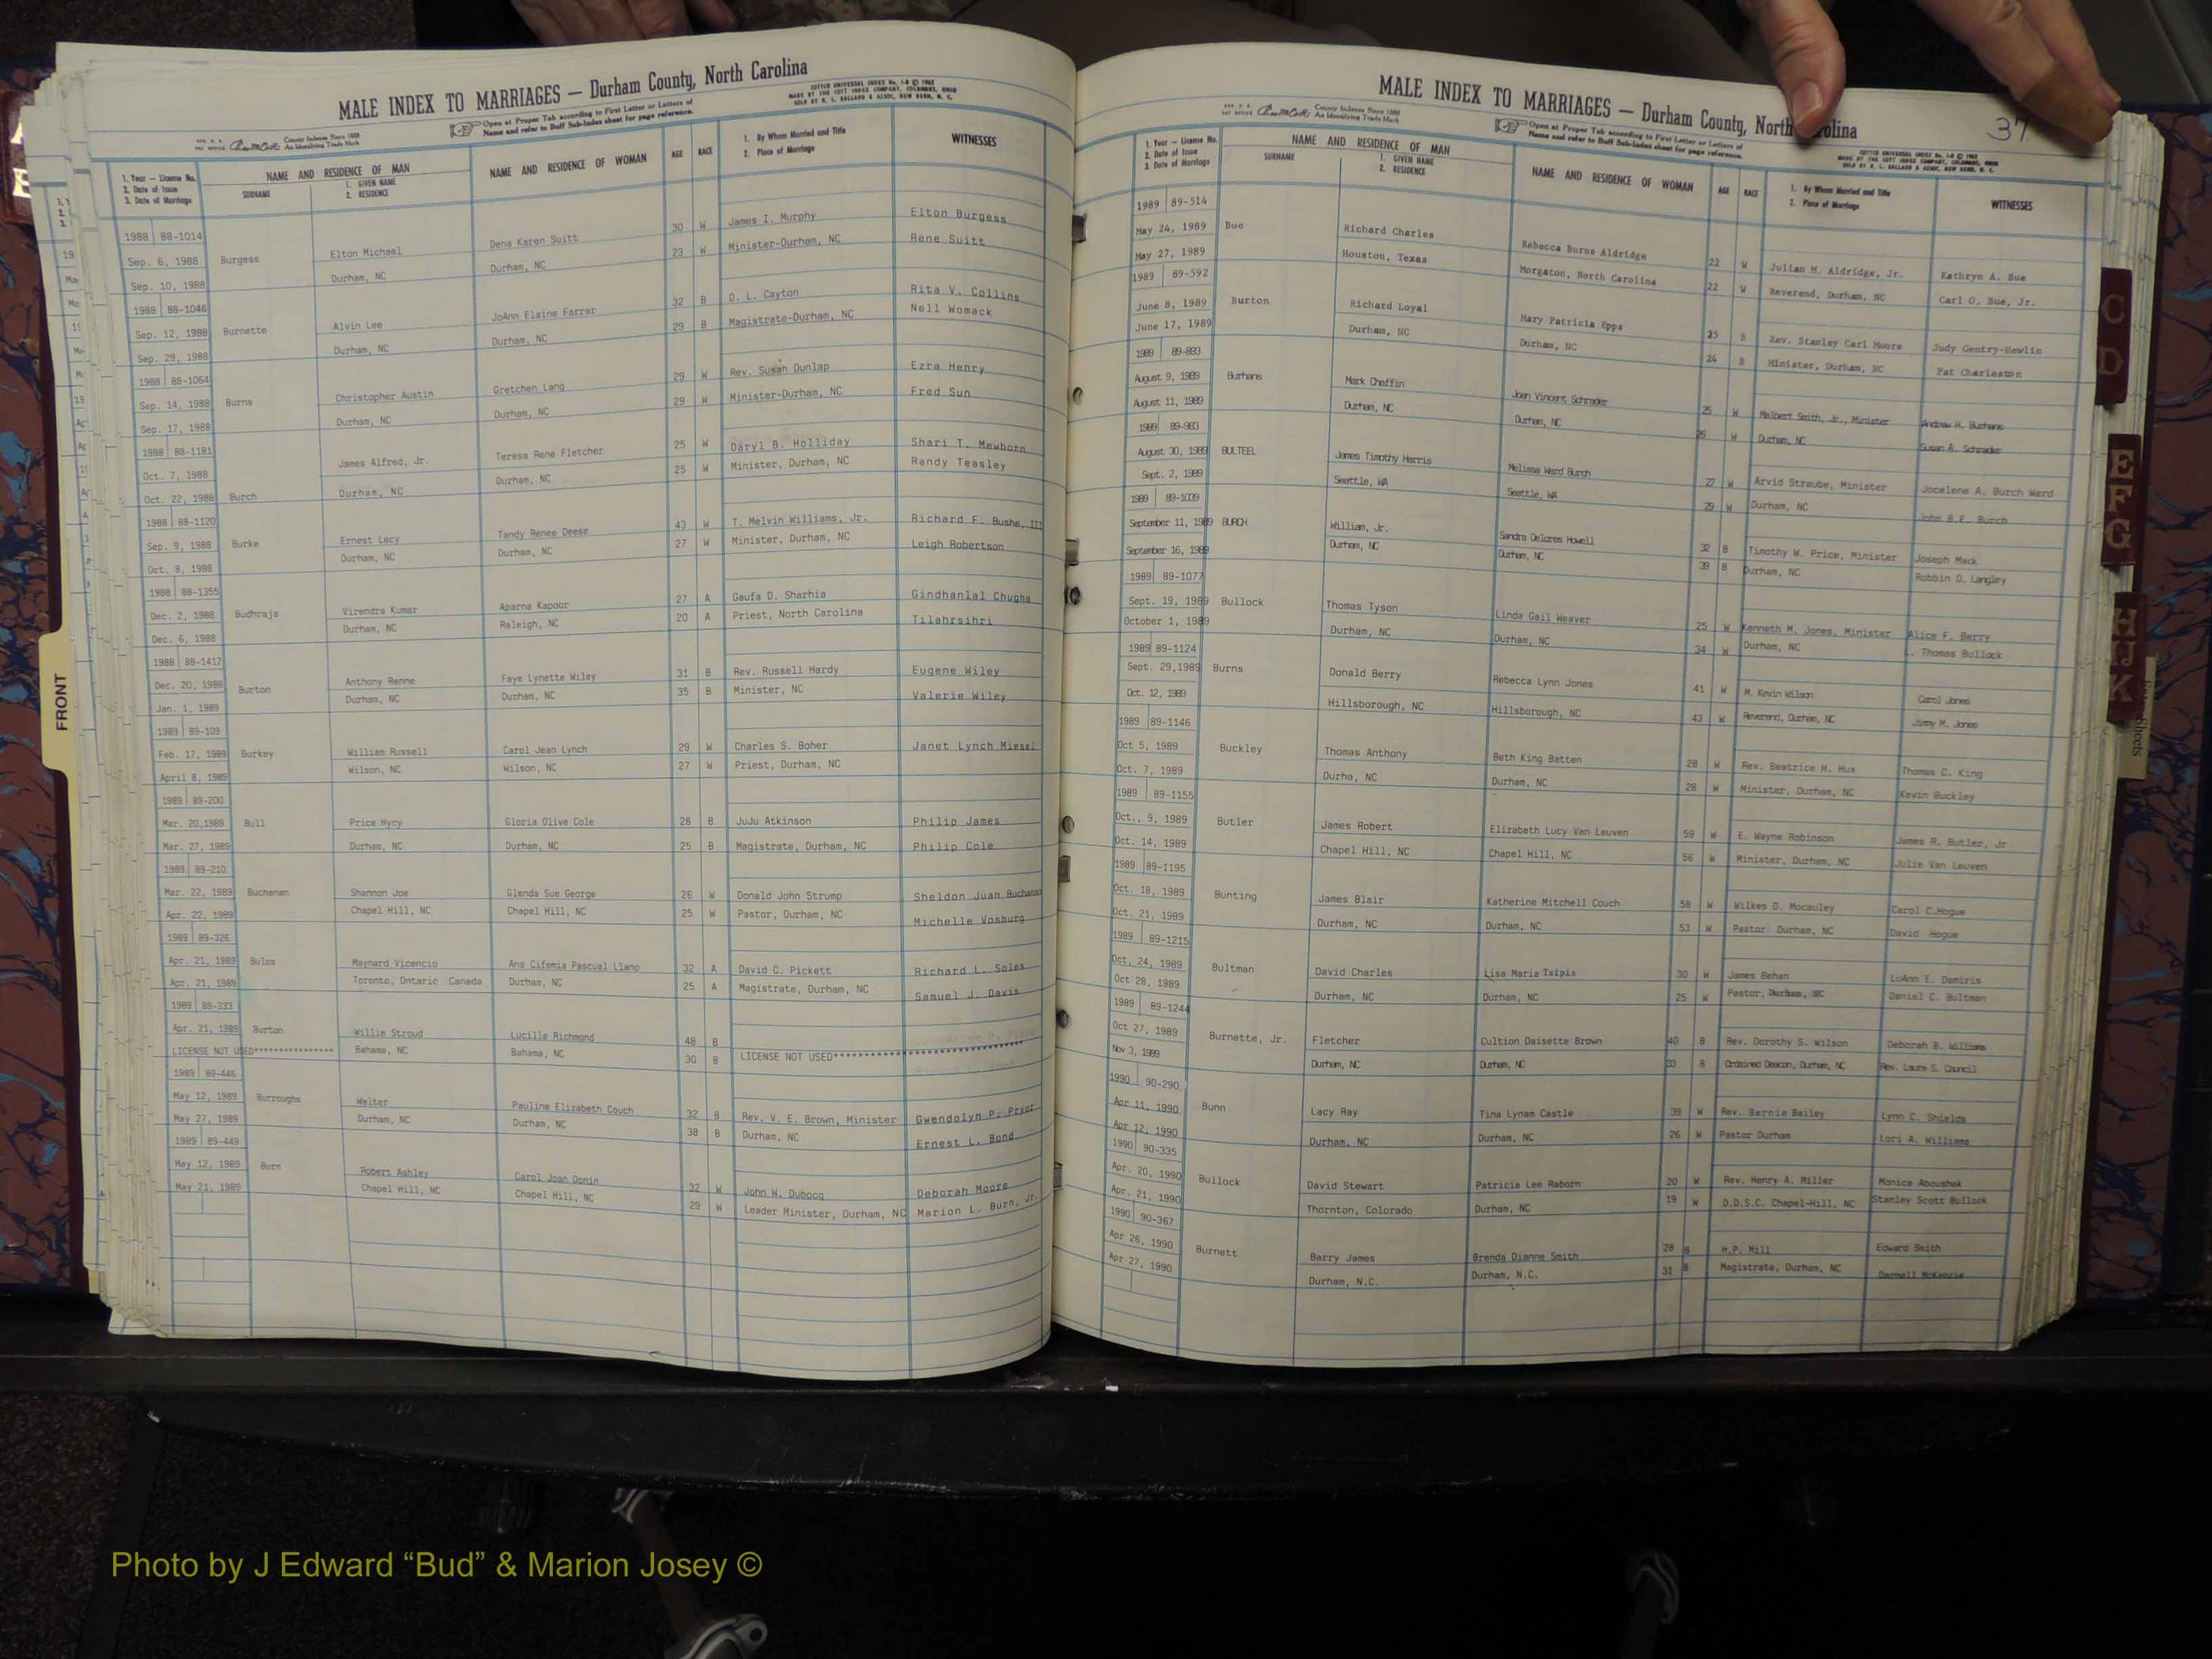 MALE INDEX TO MARRIAGES — Durham County, North Carolina
Open at Proper Tab according to First Letter or Letters of
Name and refer to Buff Sub-Index sheet for page reference.
COTTCO UNIVERSAL INDEX No. 1-8 © 1962
MADE BY THE COTT INDEX COMPANY, COLUMBUS, OHIO
SOLD BY H. L. BALLARD & ASSOC. NEW BERN, N. C.
County Indexes Since 1888
An Identifying Trade Mark
1. Year — License No.
2. Date of Issue
3. Date of Marriage
NAME AND RESIDENCE OF MAN
SURNAME
1. GIVEN NAME
2. RESIDENCE
NAME AND RESIDENCE OF WOMAN
AGE
RACE
1. By Whom Married and Title
2. Place of Marriage
WITNESSES
1988 88-1014 30 W James I. Murphy Elton Burgess
Sep. 6, 1988 Burgess Elton Michael Dena Karen Suitt 23 W Minister-Durham, NC Rene Suitt
Sep. 10, 1988 Durham, NC Durham, NC
1988 88-1046 32 B D. L. Cayton Rita V. Collins
Sep. 12, 1988 Burnette Alvin Lee JoAnn Elaine Farrar 29 B Magistrate-Durham, NC Nell Womack
Sep. 29, 1988 Durham, NC Durham, NC
1988 88-1064 29 W Rev. Susan Dunlap Ezra Henry
Sep. 14, 1988 Burns Christopher Austin Gretchen Lang 29 W Minister-Durham, NC Fred Sun
Sep. 17, 1988 Durham, NC Durham, NC
1988 88-1181 James Alfred, Jr. Teresa Rene Fletcher 25 W Daryl B. Holliday Shari T. Mewborn
Oct. 7, 1988 Durham, NC Durham, NC 25 W Minister, Durham, NC Randy Teasley
Oct. 22, 1988 Burch
1988 88-1120 Ernest Lacy Tandy Renee Deese 43 W T. Melvin Williams, Jr. Richard F. Bushe, III
Sep. 9, 1988 Burke Durham, NC Durham, NC 27 W Minister, Durham, NC Leigh Robertson
Oct. 8, 1988
1988 88-1355 Virendra Kumar Aparna Kapoor 27 A Gaufa D. Sharhia Gindhanlal Chugha
Dec. 2, 1988 Budhraja Durham, NC Raleigh, NC 20 A Priest, North Carolina Tilahrsihri
Dec. 6, 1988
1988 88-1417 Anthony Renne Faye Lynette Wiley 31 B Rev. Russell Hardy Eugene Wiley
Dec. 20, 1988 Burton Durham, NC Durham, NC 35 B Minister, NC Valerie Wiley
Jan. 1, 1989
1989 89-109
Feb. 17, 1989 Burkey William Russell Carol Jean Lynch 29 W Charles S. Boher Janet Lynch Miesel
April 8, 1989 Wilson, NC Wilson, NC 27 W Priest, Durham, NC
1989 89-200
Mar. 20,1989 Bull Price Hycy Gloria Olive Cole 28 B JuJu Atkinson Philip James
Mar. 27, 1989 Durham, NC Durham, NC 25 B Magistrate, Durham, NC Philip Cole
1989 89-210
Mar. 22, 1989 Buchanan Shannon Joe Glenda Sue George 26 W Donald John Strump Sheldon Juan Buchanan
Apr. 22, 1989 Chapel Hill, NC Chapel Hill, NC 25 W Pastor, Durham, NC Michelle Vosburg
1989 89-326
Apr. 21, 1989 Bulos Maynard Vicencio Ana Cifemia Pascual Llano 32 A David C. Pickett Richard L. Soles
Apr. 21, 1989 Toronto, Ontario Canada Durham, NC 25 A Magistrate, Durham, NC Samuel J. Davis
1989 89-333
Apr. 21, 1989 Burton Willie Stroud Lucille Richmond 48 B
LICENSE NOT USED*************** Bahama, NC Bahama, NC 30 B LICENSE NOT USED******************************
1989 89-446
May 12, 1989 Burroughs Walter Pauline Elizabeth Couch 32 B Rev. V. E. Brown, Minister Gwendolyn P. Pryor
May 27, 1989 Durham, NC Durham, NC 38 B Durham, NC Ernest L. Bond
1989 89-449
May 12, 1989 Burn Robert Ashley Carol Joan Donin 32 W John W. Dubocq Deborah Moore
May 21, 1989 Chapel Hill, NC Chapel Hill, NC 29 W Leader Minister, Durham, NC Marion L. Burn, Jr.
FRONT
MALE INDEX TO MARRIAGES — Durham County, North Carolina
37
Open at Proper Tab according to First Letter or Letters of
Name and refer to Buff Sub-Index sheet for page reference.
COTTCO UNIVERSAL INDEX No. 1-8 © 1962
MADE BY THE COTT INDEX COMPANY, COLUMBUS, OHIO
SOLD BY H. L. BALLARD & ASSOC. NEW BERN, N. C.
County Indexes Since 1888
An Identifying Trade Mark
1. Year — License No.
2. Date of Issue
3. Date of Marriage
NAME AND RESIDENCE OF MAN
SURNAME
1. GIVEN NAME
2. RESIDENCE
NAME AND RESIDENCE OF WOMAN
AGE
RACE
1. By Whom Married and Title
2. Place of Marriage
WITNESSES
1989 89-514
May 24, 1989 Bue Richard Charles Rebecca Burns Aldridge 22 W Julian M. Aldridge, Jr. Kathryn A. Bue
May 27, 1989 Houston, Texas Morgaton, North Carolina 22 W Reverend, Durham, NC Carl O. Bue, Jr.
1989 89-592
June 8, 1989 Burton Richard Loyal Mary Patricia Epps 25 B Rev. Stanley Carl Moore Judy Gentry-Hewlin
June 17, 1989 Durham, NC Durham, NC 24 B Minister, Durham, NC Pat Charleston
1989 89-893
August 9, 1989 Burhans Mark Chaffin Joan Vincent Schrader 25 W Melbert Smith, Jr., Minister Andrew H. Burhans
August 11, 1989 Durham, NC Durham, NC 25 W Durham, NC Susan A. Schrader
1989 89-983
August 30, 1989 BULTEEL James Timothy Harris Melissa Ward Burch 27 W Arvid Straube, Minister Jocelene A. Burch Ward
Sept. 2, 1989 Seattle, WA Seattle, WA 29 W Durham, NC John B.F. Burch
1989 89-1039
September 11, 1989 BURCH William, Jr. Sandra Delores Howell 32 B Timothy W. Price, Minister Joseph Mack
September 16, 1989 Durham, NC Durham, NC 39 B Durham, NC Robbin D. Langley
1989 89-1077
Sept. 19, 1989 Bullock Thomas Tyson Linda Gail Weaver 25 W Kenneth M. Jones, Minister Alice F. Berry
October 1, 1989 Durham, NC Durham, NC 34 W Durham, NC L. Thomas Bullock
1989 89-1124
Sept. 29,1989 Burns Donald Berry Rebecca Lynn Jones 41 W M. Kevin Wilson Carol Jones
Oct. 12, 1989 Hillsborough, NC Hillsborough, NC 43 W Reverend, Durham, NC Jimmy M. Jones
1989 89-1146
Oct 5, 1989 Buckley Thomas Anthony Beth King Batten 28 W Rev. Beatrice H. Hux Thomas C. King
Oct. 7, 1989 Durha, NC Durham, NC 28 W Minister, Durham, NC Kevin Buckley
1989 89-1155
Oct., 9, 1989 Butler James Robert Elizabeth Lucy Van Leuven 59 W E. Wayne Robinson James R. Butler, Jr
Oct. 14, 1989 Chapel Hill, NC Chapel Hill, NC 56 W Minister, Durham, NC Julie Van Leuven
1989 89-1195
Oct. 18, 1989 Bunting James Blair Katherine Mitchell Couch 58 W Wilkes D. Mocauley Carol C.Hogue
Oct. 21, 1989 Durham, NC Durham, NC 53 W Pastor Durham, NC David Hogue
1989 89-1215
Oct, 24, 1989 Bultman David Charles Lisa Maria Tsipis 30 W James Behan LuAnn E. Damiris
Oct 28, 1989 Durham, NC Durham, NC 25 W Pastor, Durham, NC Daniel C. Bultman
1989 89-1244
Oct 27, 1989 Burnette, Jr. Fletcher Cultion Daisette Brown 40 B Rev. Dorothy S. Wilson Deborah B. Williams
Nov 3, 1989 Durham, NC Durham, NC 33 B Ordained Deacon, Durham, NC Rev. Laura S. Council
1990 90-290
Apr 11, 1990 Bunn Lacy Ray Tina Lynam Castle 39 W Rev. Bernie Bailey Lynn C. Shields
Apr 12, 1990 Durham, NC Durham, NC 26 W Pastor Durham Lori A. Williams
1990 90-335
Apr. 20, 1990 Bullock David Stewart Patricia Lee Raborn 20 W Rev. Henry A. Miller Monica Aboushek
Apr. 21, 1990 Thornton, Colorado Durham, NC 19 W D.D.S.C. Chapel-Hill, NC Stanley Scott Bullock
1990 90-367
Apr 26, 1990 Burnett Barry James Brenda Dianne Smith 28 B H.P. Mill Edward Smith
Apr 27, 1990 Durham, N.C. Durham, N.C. 31 B Magistrate, Durham, NC Darnell McKenzie
C
D
E
F
G
H
IJ
K
Sheets
Photo by J Edward “Bud” & Marion Josey ©